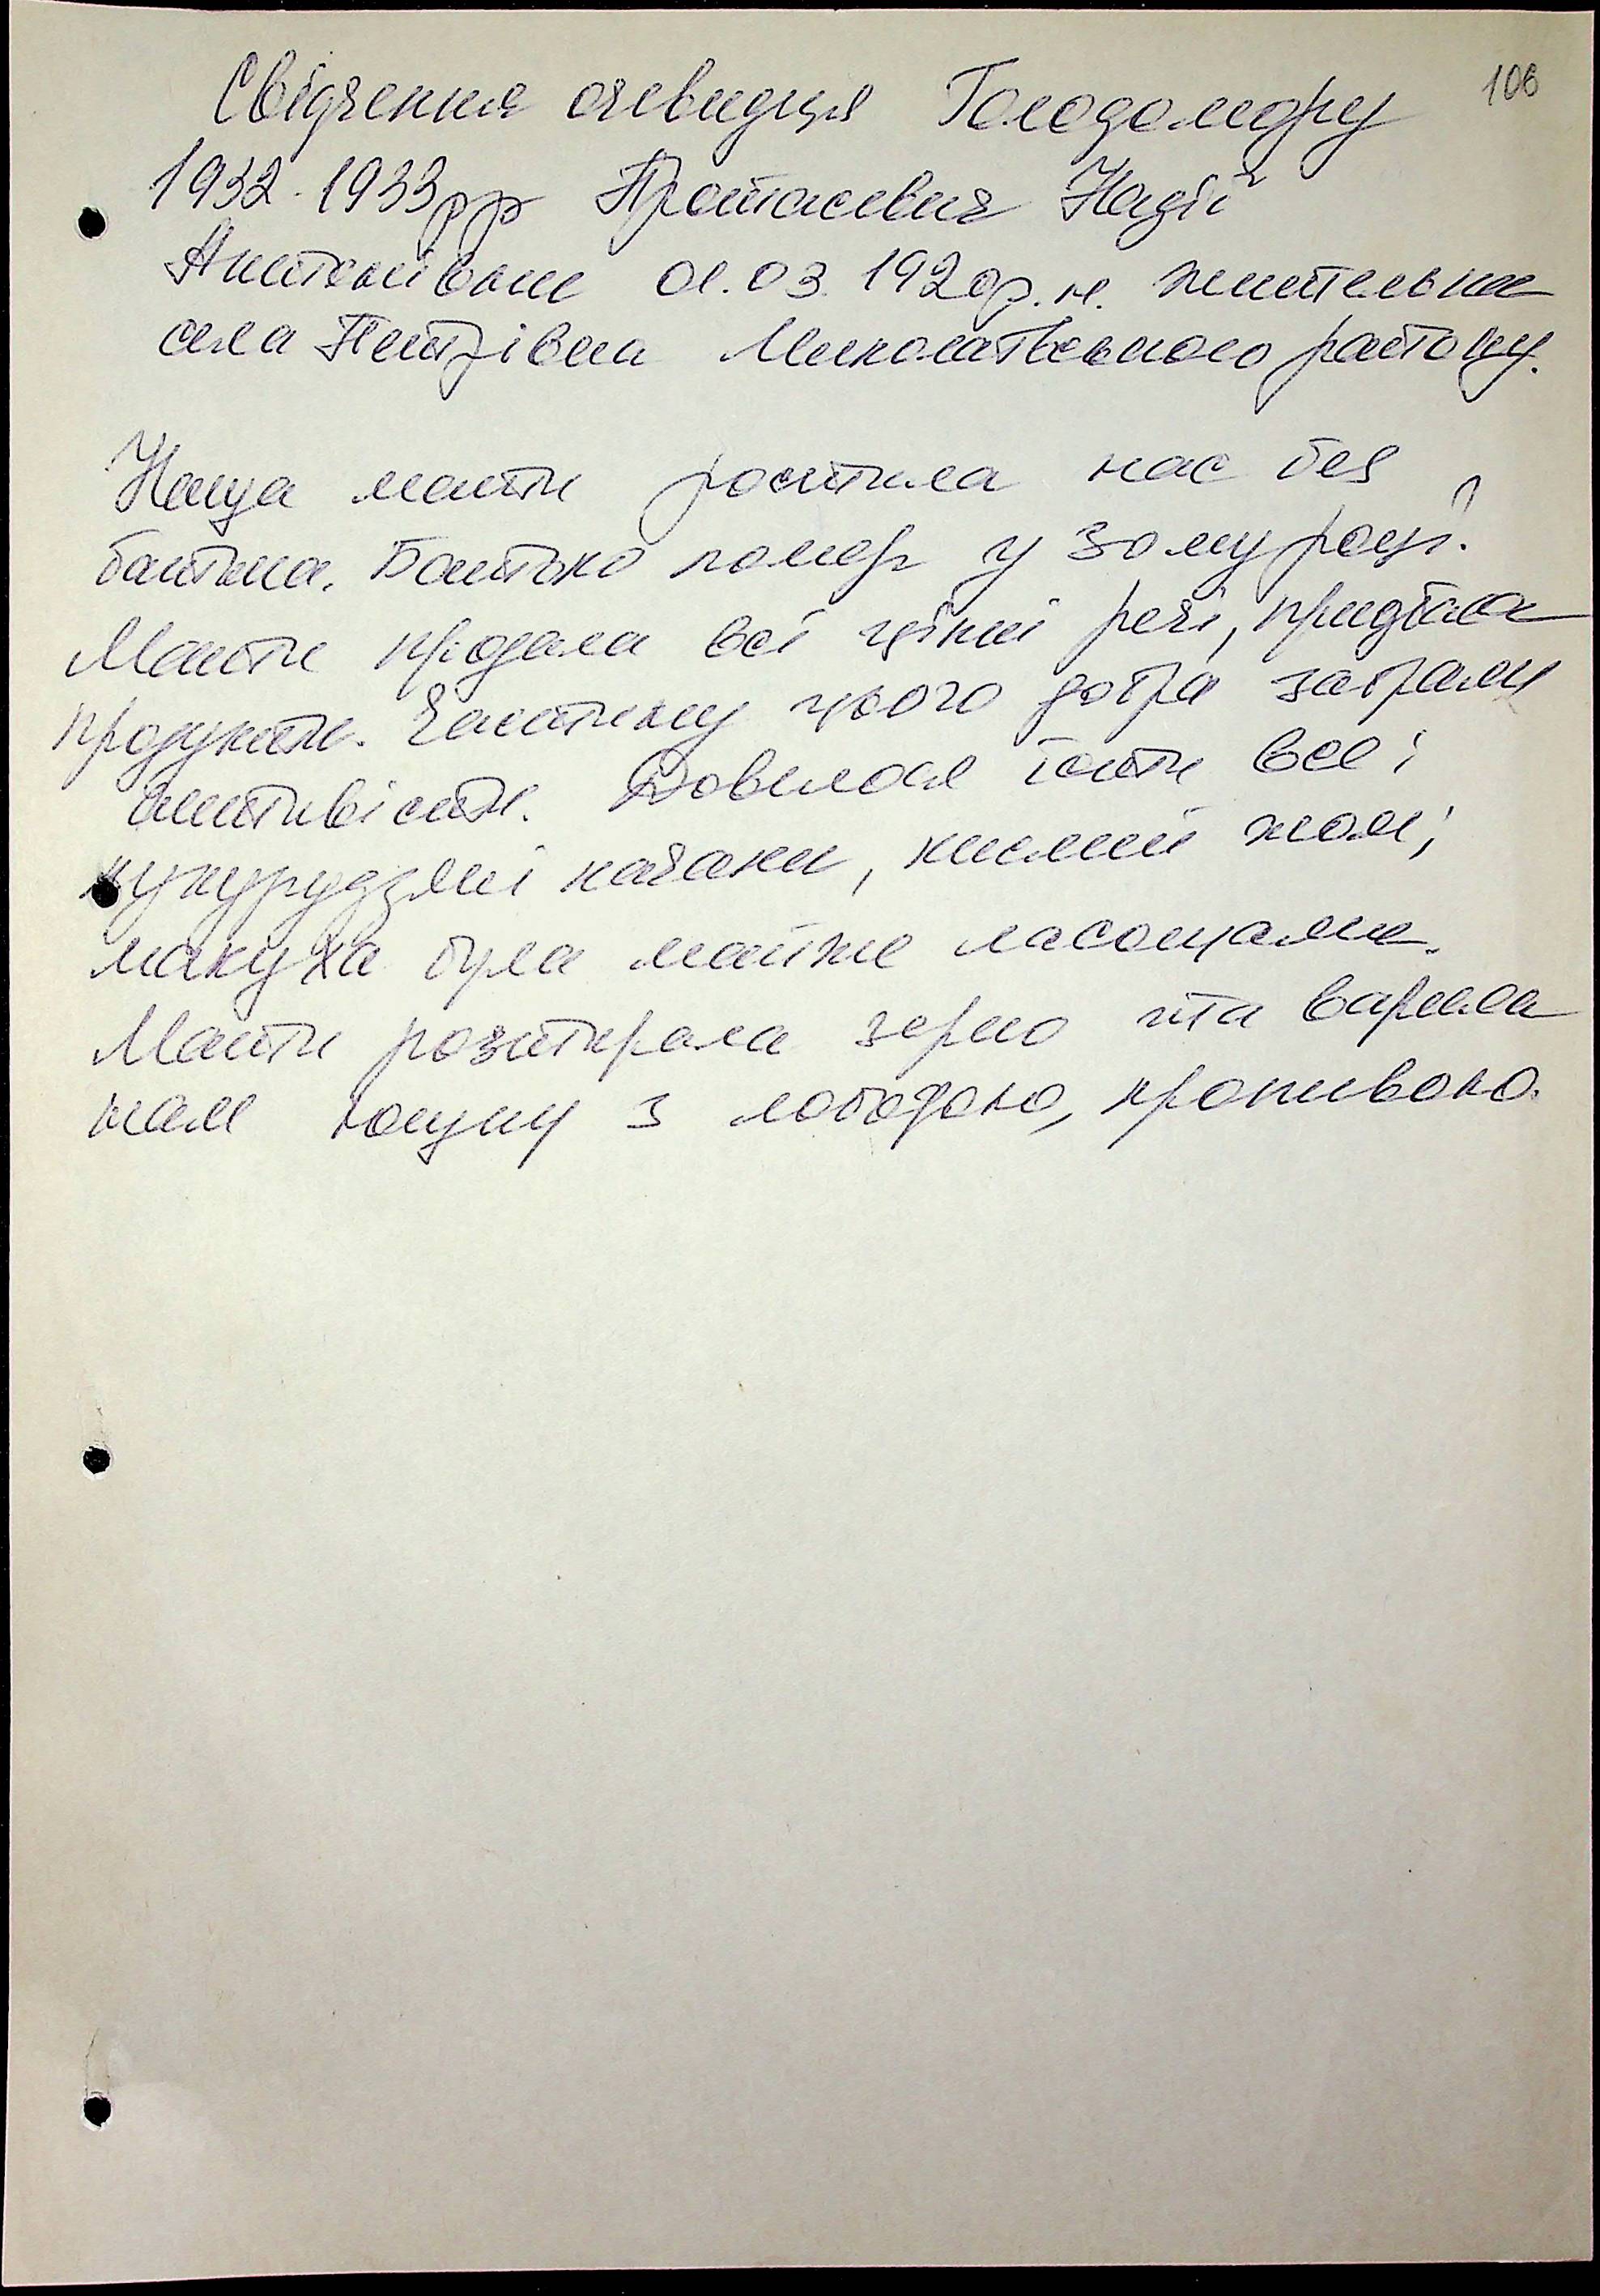 106
Свідчення очевидця Голодомору
1932-1933рр Протасевич Надії
Антонівни 01.03.1920р.н. жительки
села Петрівка Миколаївського району.
Наша мати ростила нас без
батька. Батько помер у 30му році.
Мати продала всі цінні речі, придбала
продукти. Частину цього добра забрали
активісти. Довелося їсти все:
кукурудзяні качани, кислий жом;
макуха була майже ласощами.
Мати розтирала зерно та варила
нам юшку з лободою, кропивою.